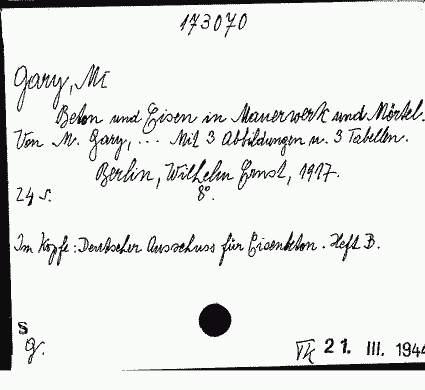 173070
Gary, M
Beton und Eisen in Mauerwerk und Mörtel.
Von M. Gary, ... Mit 3 Abbildungen u. 3 Tabellen.
Berlin, Wilhelm Ernst, 1917.
24 S. 8°.
Im Kopfe: Deutscher Ausschuss für Eisenbeton. Heft B.
S
g.
21. III. 1944